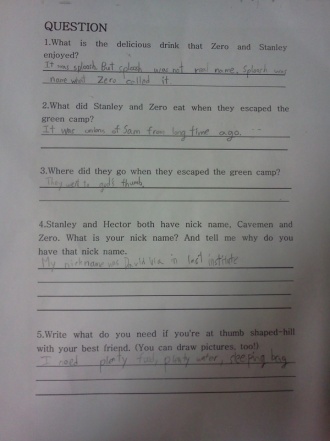 QUESTION
1.What is the delicious drink that Zero and Stanley
enjoyed?
It was splash. But splash was not real name. Splash was
name Zero called it
2.What did Stanley and Zero eat when they escaped the
green camp?
It was onions of Sam from long time ago.
3.Where did they go when they escaped the green camp?
They went to god thumb.
4.Stanley and Hector both have nick name, Cavemen and
Zero. What is your nick name? And tell me why do you
have that nick name.
My nickname was in last institute.
5.Write what do you need if you're at thumb shaped-hill
with your best friend. (You can draw pictures, too!)
I need plenty food, plenty water, sleeping bag